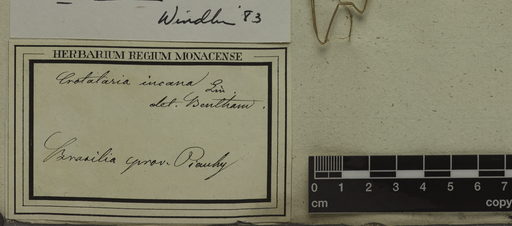 Windler '83
HERBARIUM REGIUM MONACENSE
Crotalaria incana Lin.
det. Bentham.
Brasilia prov. Piauhy
0 1 2 3 4 5 6 7
cm copy